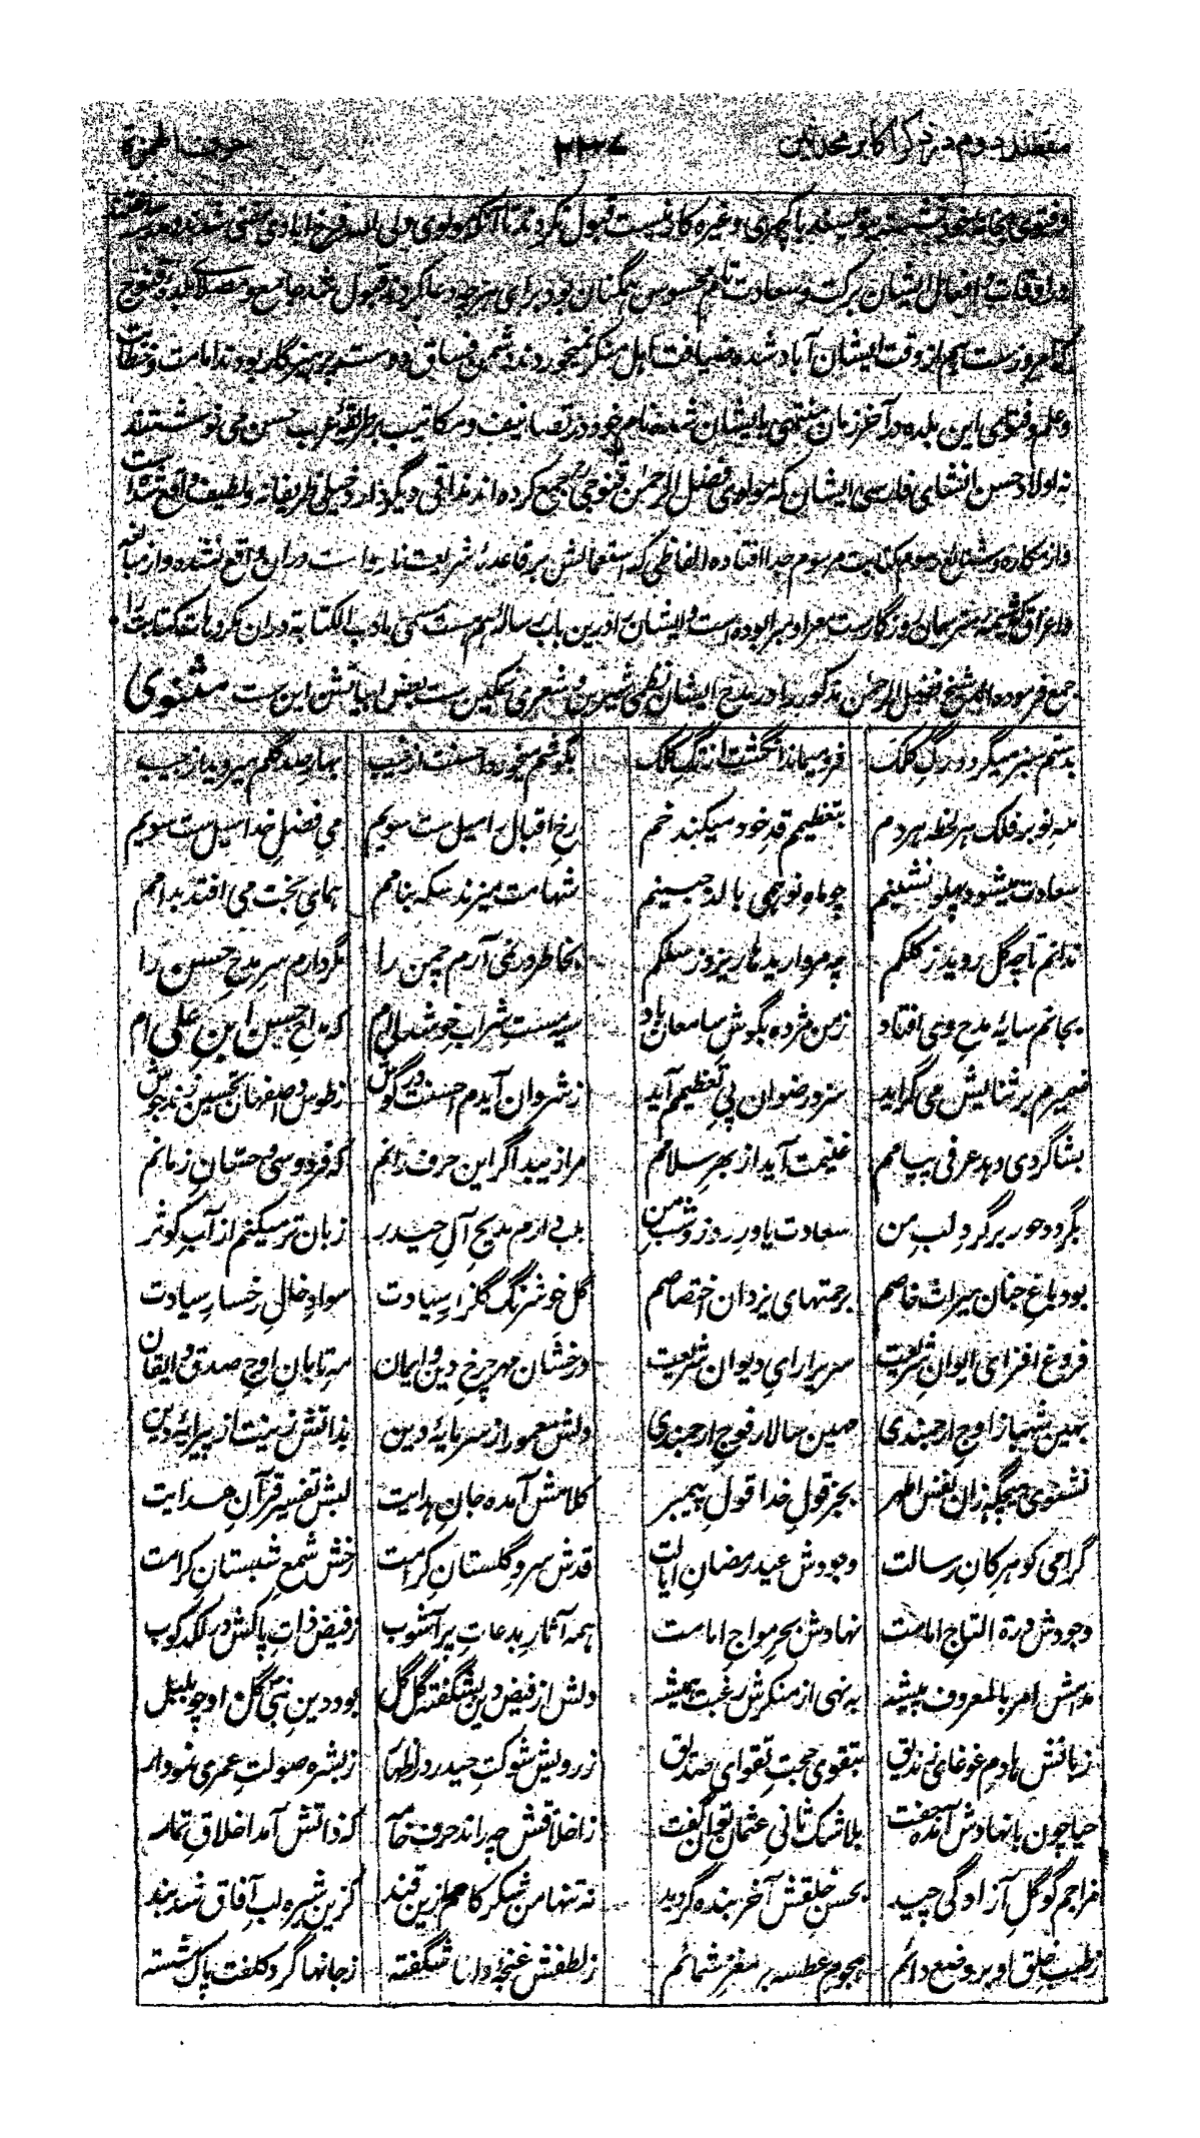 مقصد دوم در ذکر اکابر محدثین ۲۲۷ حرف الهمزة
وفتوی بجای خود نشسته نوشتند یا کچهری وغیره کار نیست قبول نکردند تا آنکه مولوی ولی الله فرخ آبادی مفتی شدند
در اوقات و افعال ایشان برکت و سعادت تام محسوس همگنان بود برای هر چه دعا کردند قبول شد جامع و مصلای بلده قنوج
که امروز ست هم از وقت ایشان آباد شده ضیافت اهل منکر نمیخوردند دشمن فساق دوست پرهیزگار بودند امامت و خطابت
وعلم وفتوای این بلده در آخر زمان منتهی بایشان شده نام خود در تصانیف و مکاتیب بر طریقهٔ عرب حسن می نوشتند
نه اولاد حسن انشای فارسی ایشان که مولوی فضل الرحمن قنوجی جمع کرده اند مذاقی دیگر دارد خیلی ظریفانه ولطیف واقع شده است
واز مکاره وشنائع رسوم کتابت مرسوم جدا افتاده الفاظی که استعمالش بر قاعدهٔ شریعت نارواست دران واقع نشده واز مبالغه
واغراق که شیمهٔ مترسلان روزگارست معرا ومبرا بوده است و ایشان را درین باب رساله هم هست مسمی بادب الکتابة دران مکروهات کتابت را
جمع فرموده اند شیخ فضل الرحمن مذکور را در مدح ایشان نظمی شیرین و شعری نمکین ست بعض ابیاتش این ست مثنوی
بدستم سبز میگردد رگ کلک فرو میماند انگشت از تگ کلک بگوشم میخورد احسنت از غیب بهار صد گلم میروید از جیب
مه نو بر فلک هر لحظه هر دم بتعظیم قد خود میکند خم رخ اقبال را میل ست سویم می فضل خدا سیل ست سویم
سعادت میشود پهلو نشینم چو ماه نو همی بالد جبینم شهامت میزند سکه بنامم همای بخت می افتد بدامم
ندانم تا چه گل روید ز کلکم چه مروارید ها ریزد ز سلکم بخاطر در نمی آرم چمن را مگر دارم سر مدح حسن را
بجانم سایهٔ مدح وی افتاد ز من مژده بگوش سامعان باد سیه مست شراب خوشدلی ام که مداح حسین ابن علی ام
ضمیرم بر ثنایش می گراید سزد رضوان پی تعظیمم آید ز شروان آیدم احسنت در گوش ز طوس و اصفهان تحسین زند جوش
بشاگردی دهد عرفی پیامم غنیمت آید از بهر سلامم مرا زیبد اگر این حرف رانم که فردوسی و حسان زمانم
بگردد حور بر گرد لب من سعادت یاور روز و شب من بلب دارم مدیح آل حیدر زبان تر میکنم از آب کوثر
بود باغ جنان میراث خاصم برحمتهای یزدان اختصاصم گل خوشرنگ گلزار سیادت سواد خال رخسار سیادت
فروغ افزای ایوان شریعت سریر آرای دیوان شریعت درخشان مهر چرخ دین و ایمان مه تابان اوج صدق و ایقان
بهین شهباز اوج ارجمندی مهین سالار فوج ارجمندی دلش معمور از سرمایهٔ دین بذاتش زینت از پیرایهٔ دین
نشنوی هیچگه زان نفس اطهر بجز قول خدا قول پیمبر کلامش آمده جان هدایت لبش تفسیر قرآن هدایت
گرامی گوهر کان رسالت وجودش عید رمضان ایالت قدش سرو گلستان کرامت رخش شمع شبستان کرامت
وجودش درة التاج امامت نهادش بحر مواج امامت همه آثار بدعات پر آشوب ز فیض ذات پاکش در لکدکوب
مدامش امر بالمعروف پیشه به نهی از منکرش رغبت همیشه دلش از فیض دین بشگفته گل گل بود دین نبی گلن او چو بلبل
زبانش هادم غوغای زندیق بتقوی حجت تقوای صدیق ز رویش شوکت حیدر در اظهار ز بشره صولت عمری نمودار
حیا چون با نهادش آمده جفت بلا شک ثانی عثمان توان گفت ز اخلاقش چه راند حرف خامه که ذاتش آمد اخلاق تمامه
مزاجم گو گل آزادگی چید بحسن خلقش آخر بنده گردید نه تنها من شکر کامم ازین قند کزین شیره لب آفاق شد بند
ز طیب خلق او بر وضع دائم هجوم عطسه بر مغز شمائم ز لطفش غنچهٔ دلها شگفته ز جانها گرد کلفت پاک شسته